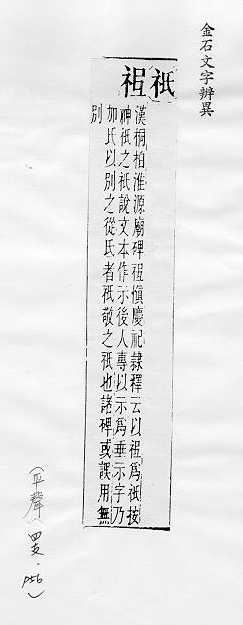 金石文字辨異
祇
祖
漢桐柏淮源廟碑祖愼慶祀隸釋云以祖爲祇按
神祇之祇說文本作示後人專以示爲垂示字乃
加氏以別之從氏者祇敬之祇也諸碑或誤用無
別
(平聲·四支·p56)